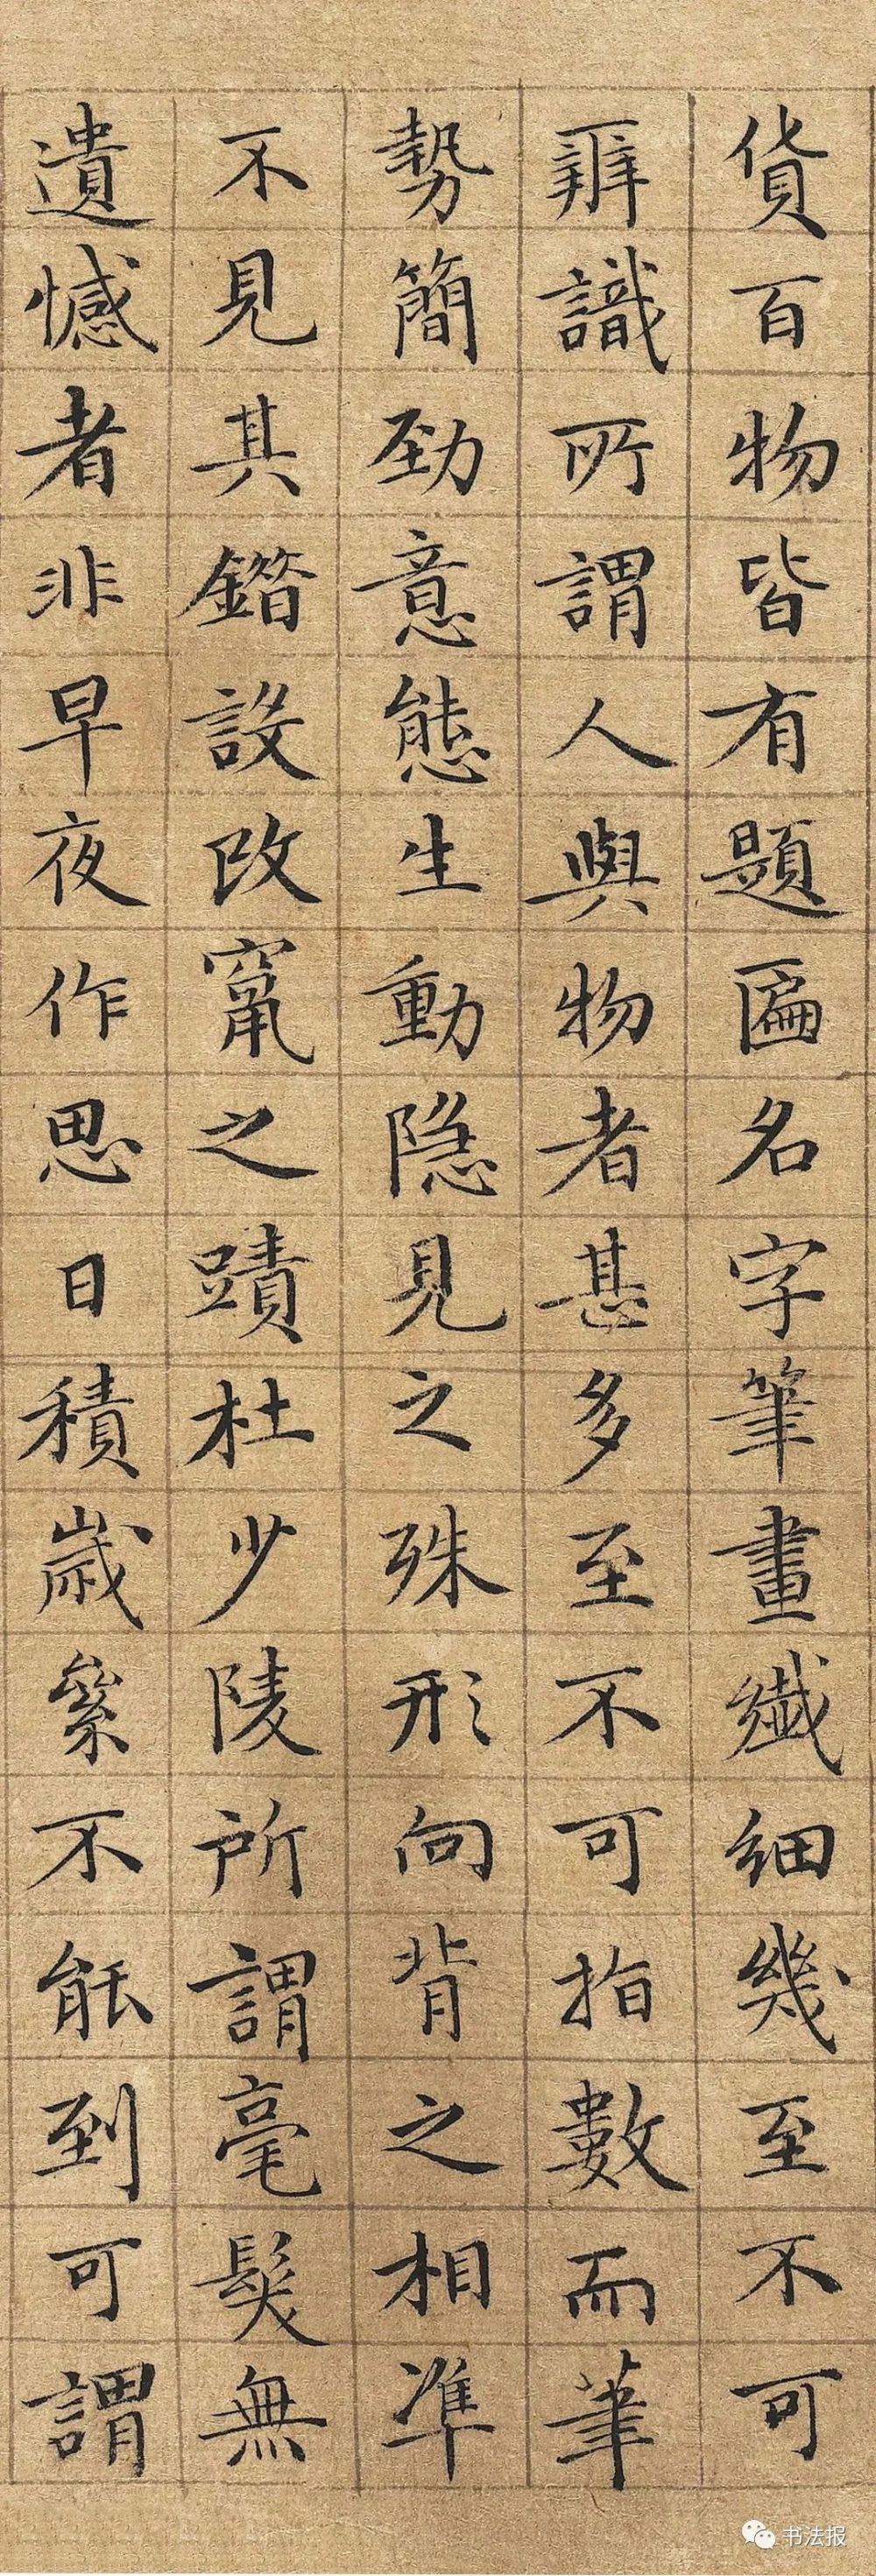 貨百物皆有題匾名字筆畫纖細幾至不可
辨識所謂人與物者甚多至不可指數而筆
勢簡勁意態生動隱見之殊形向背之相準
不見其鐕設改竄之蹟杜少陵所謂毫髮無
遺憾者非早夜作思日積歲絫不能到可謂
书法报